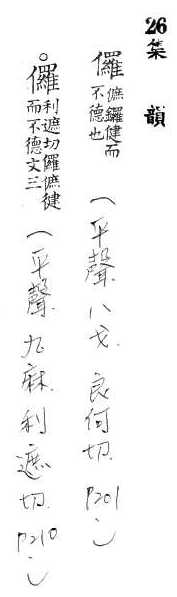 26集韻
儸㒓儸健而不德也(平聲.八戈.良何切.P201)
。儸利遮切儸㒓健而不德文三(平聲.九麻.利遮切.P210)